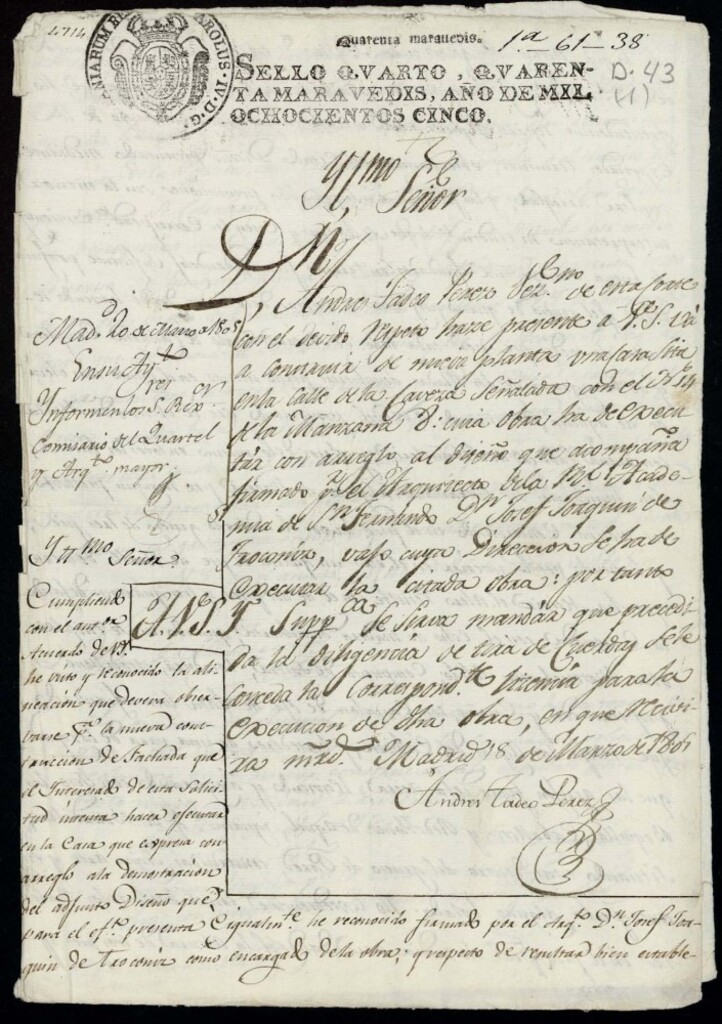 1714
HISPANIARUM REX CAROLUS IV D G
Quarenta maravedis.
1ª-61-38
D-43
(1)
SELLO QVARTO, QVAREN-
TA MARAVEDIS, AÑO DE MIL
OCHOCIENTOS CINCO.
Yllmo Señor
Dn. Andres Tadeo Perez Vezno. de esta Corte
con el devido respeto haze presente a V.S. Y. va
a construir de nueva planta una casa sita
en la Calle de la Caveza señalada con el No. 14
de la Manzana 8: cuia obra ha de execu
tar con arreglo al diseño que acompaña
firmado pr. el Arquitecto de la Rl. Acade-
mia de Sn. Fernando Dn. Josef Joaquin de
Troconiz, vajo cuya Direccion se ha de
executar la citada obra: por tanto
A.V.S.Y. Suppca. se sirva mandar que precedi
da la diligencia de tira de Cuerdas se le
conceda la correspondte. licencia para la
execucion de dha obra, en que recivi-
ra mrd. Madrid 18 de Marzo de 1805
Andres Tadeo Perez
Madd. 20 de Marzo de 1805
En su Aytto.
Ynformen los Sres. Rexor.
Comisario del Quartel
y Arqto. mayor.
Yllmo Señor.
Cumpliendo
con el antor.
Acuerdo de V.Y.
he visto y reconocido la ali
neacion que devera obser-
varse pa. la nueva cons-
truccion de Fachada que
el Interesado de esta Solici-
tud intenta hacer executar
en la Casa que expresa con
arreglo a la demostracion
del adjunto Diseño que
para el efto. presenta e igualmte. he reconocido firmado por el Arqto. Dn. Josef Joa-
quin de Troconiz como encargado de la obra; y respecto de resultar bien estable-